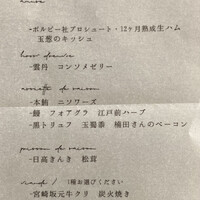 -ボルピー社プロシュート・12ヶ月熟成生ハム
玉葱のキッシュ
-雲丹 コンソメゼリー
-本鮪 ニソワーズ
-鰻 フォアグラ 江戸前ハーブ
-黒トリュフ 玉蜀黍 楠田さんのベーコン
poisson de saison
-日高きんき 松茸
viande / 1種お選びください
-宮崎坂元牛クリ 炭火焼き